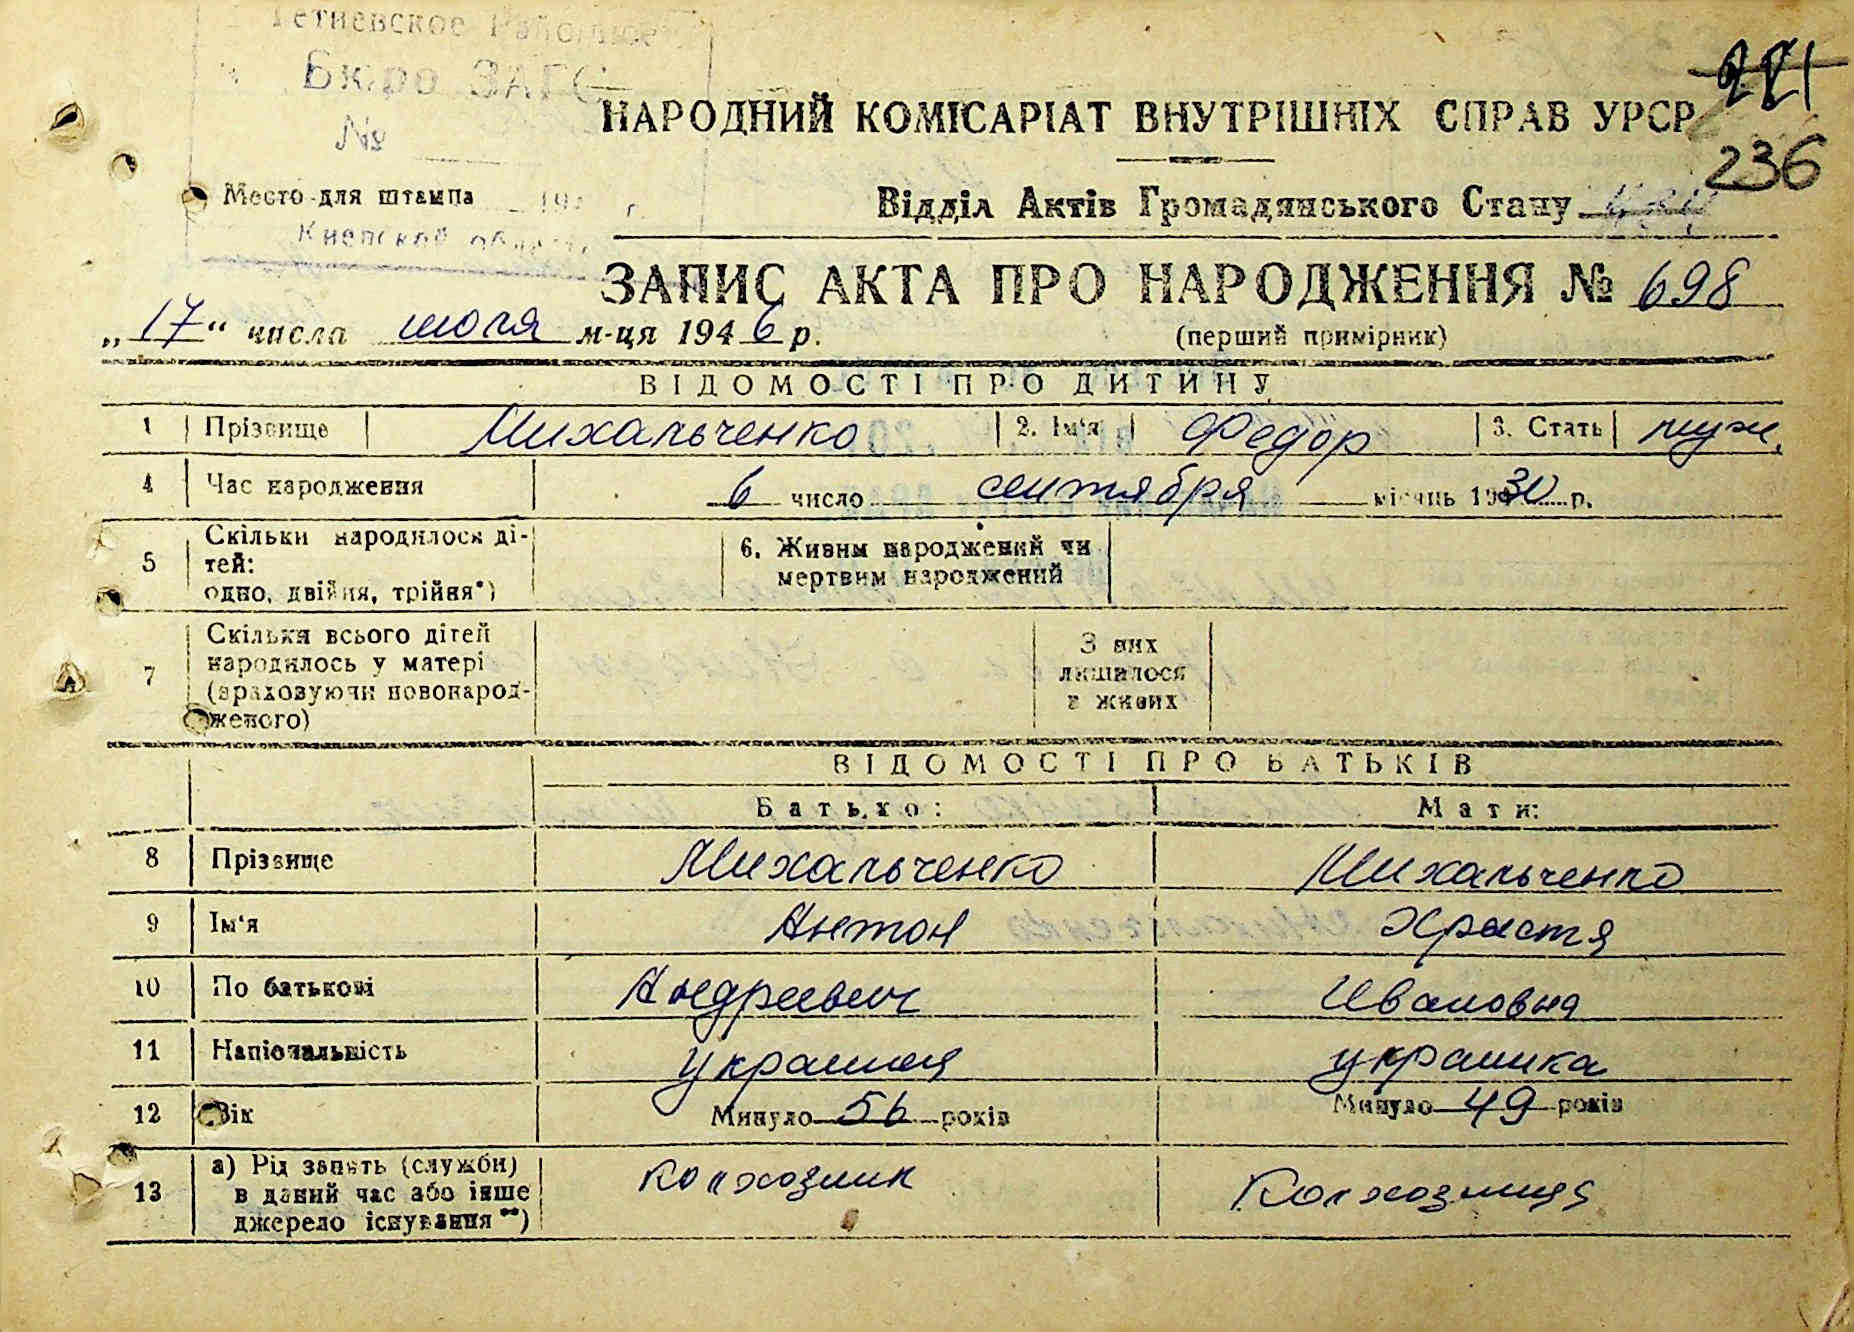 Тетиевское Районное
Бюро ЗАГС
№
221
НАРОДНИЙ КОМІСАРІАТ ВНУТРІШНІХ СПРАВ УРСР
236
Место для штампа 194 г.
Відділ Актів Громадянського Стану
Киевской области
ЗАПИС АКТА ПРО НАРОДЖЕННЯ № 698
„17“ числа июля м-ця 1946 р. (перший примірник)
ВІДОМОСТІ ПРО ДИТИНУ
1 Прізвище Михальченко 2. Ім'я Федор 3. Стать муж.
4 Час народження 6 число сентября місяць 1930 р.
5 Скільки народилося ді-
тей:
одно, двійня, трійня*)
6. Живим народжений чи
мертвим народжений
7 Скільки всього дітей
народилось у матері
(враховуючи новонарод-
женого)
З них
лишилося
в живих
ВІДОМОСТІ ПРО БАТЬКІВ
Батько: Мати:
8 Прізвище Михальченко Михальченко
9 Ім'я Антон Христя
10 По батькові Андреевич Ивановна
11 Національність украинец украинка
12 Вік Минуло 56 років Минуло 49 років
13 а) Рід занять (служби)
в даний час або інше
джерело існування **)
колхозник Колхозница